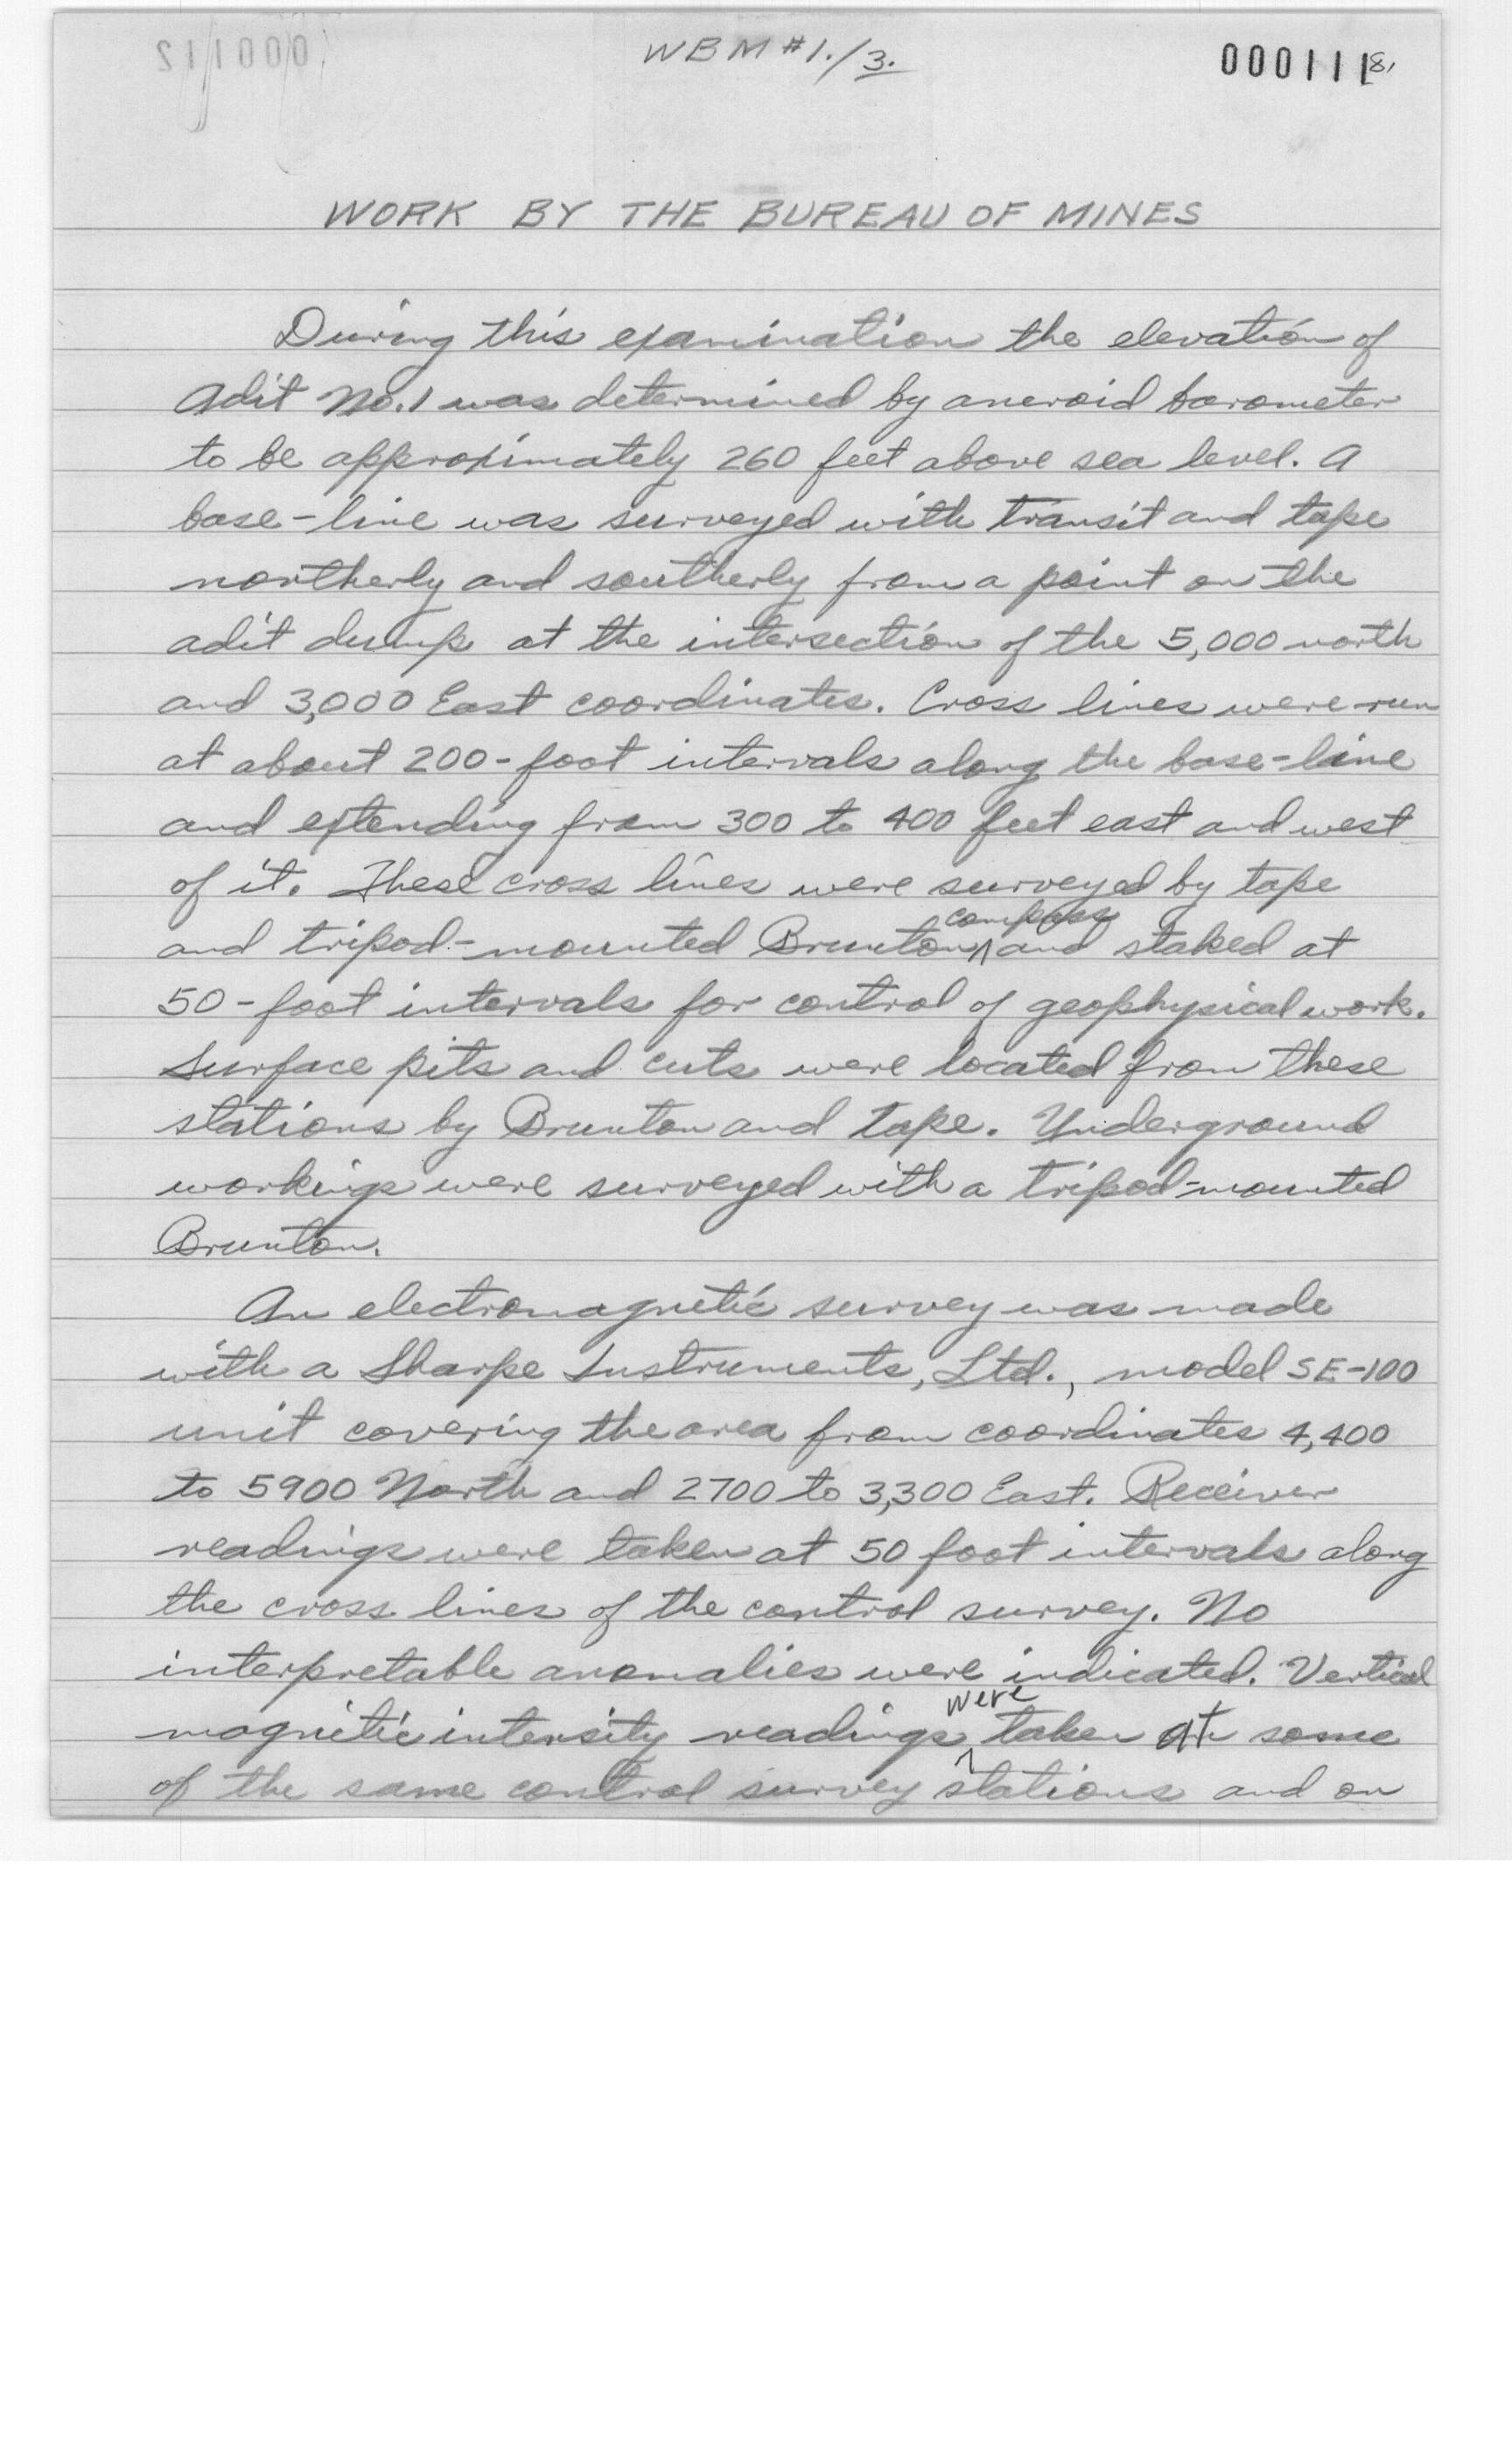 WBM #1./3.
000111 8,
WORK BY THE BUREAU OF MINES
During this examination the elevation of
Adit No. 1 was determined by aneroid barometer
to be approximately 260 feet above sea level. A
base-line was surveyed with transit and tape
northerly and southerly from a point on the
adit dump at the intersection of the 5,000 north
and 3,000 East coordinates. Cross lines were run
at about 200-foot intervals along the base-line
and extending from 300 to 400 feet east and west
of it. These cross lines were surveyed by tape
and tripod-mounted Brunton compass and staked at
50-foot intervals for control of geophysical work.
Surface pits and cuts were located from these
stations by Brunton and tape. Underground
workings were surveyed with a tripod-mounted
Brunton.
An electromagnetic survey was made
with a Sharpe Instruments, Ltd., model SE-100
unit covering the area from coordinates 4,400
to 5900 North and 2700 to 3,300 East. Receiver
readings were taken at 50 foot intervals along
the cross lines of the control survey. No
interpretable anomalies were indicated. Vertical
magnetic intensity readings were taken at some
of the same control survey stations and on